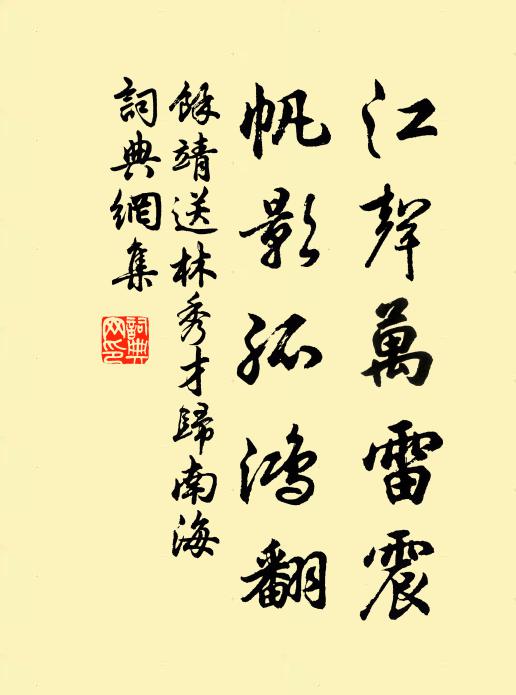 江聲萬雷震
帆影孤鴻翻
餘靖送林秀才歸南海
詞典網集
詞典網印